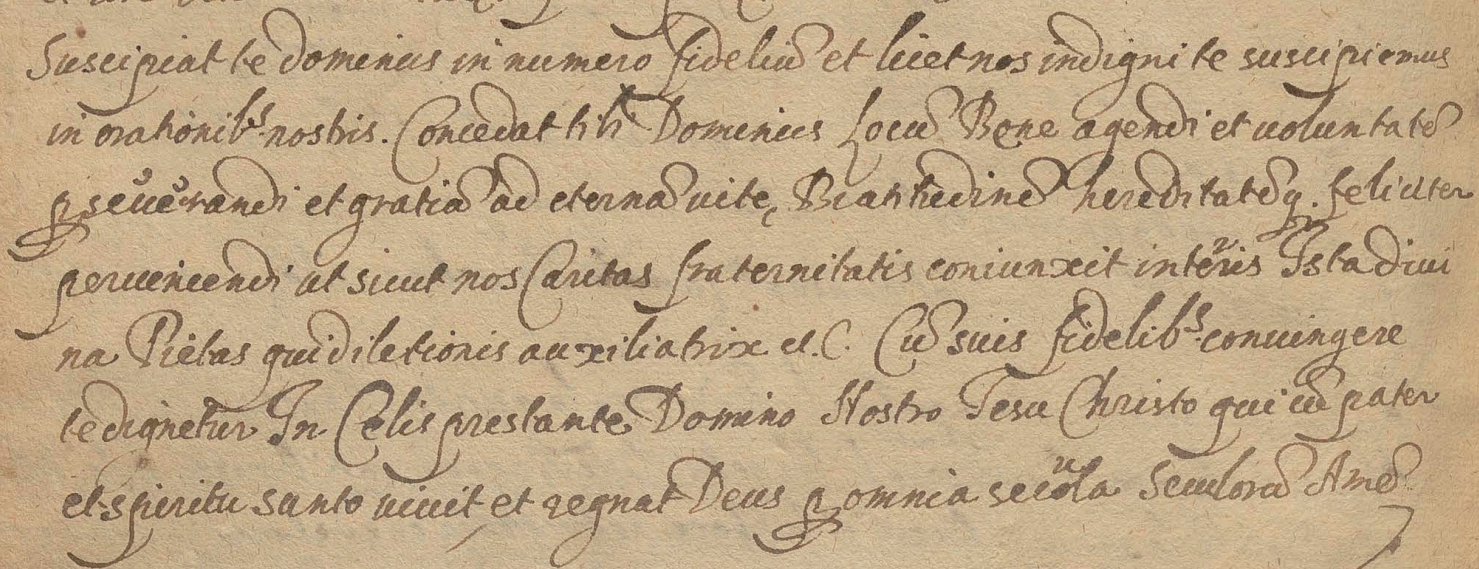 Suscipiat te dominus in numero fideliū et licet nos indigni te suscipiemus
in orationibs nostris. Concedat tibi Dominus Locū Bene agendi et voluntatē
pseverandi et gratiā ad eternā vite, Beatitudinē hereditatēq. feliciter
perveniendi ut sicut nos Caritas fraternitatis coniunxit in teris Ista divi
na Pietas qui diletionis auxiliatrix et.C. Cū suis fidelibs convingere
te dignetur In Celis prestante Domino Nostro Jesu Christo qui cū pater
et spiritu santo vivit et regnat Deus p omnia secula Seculorū Amē